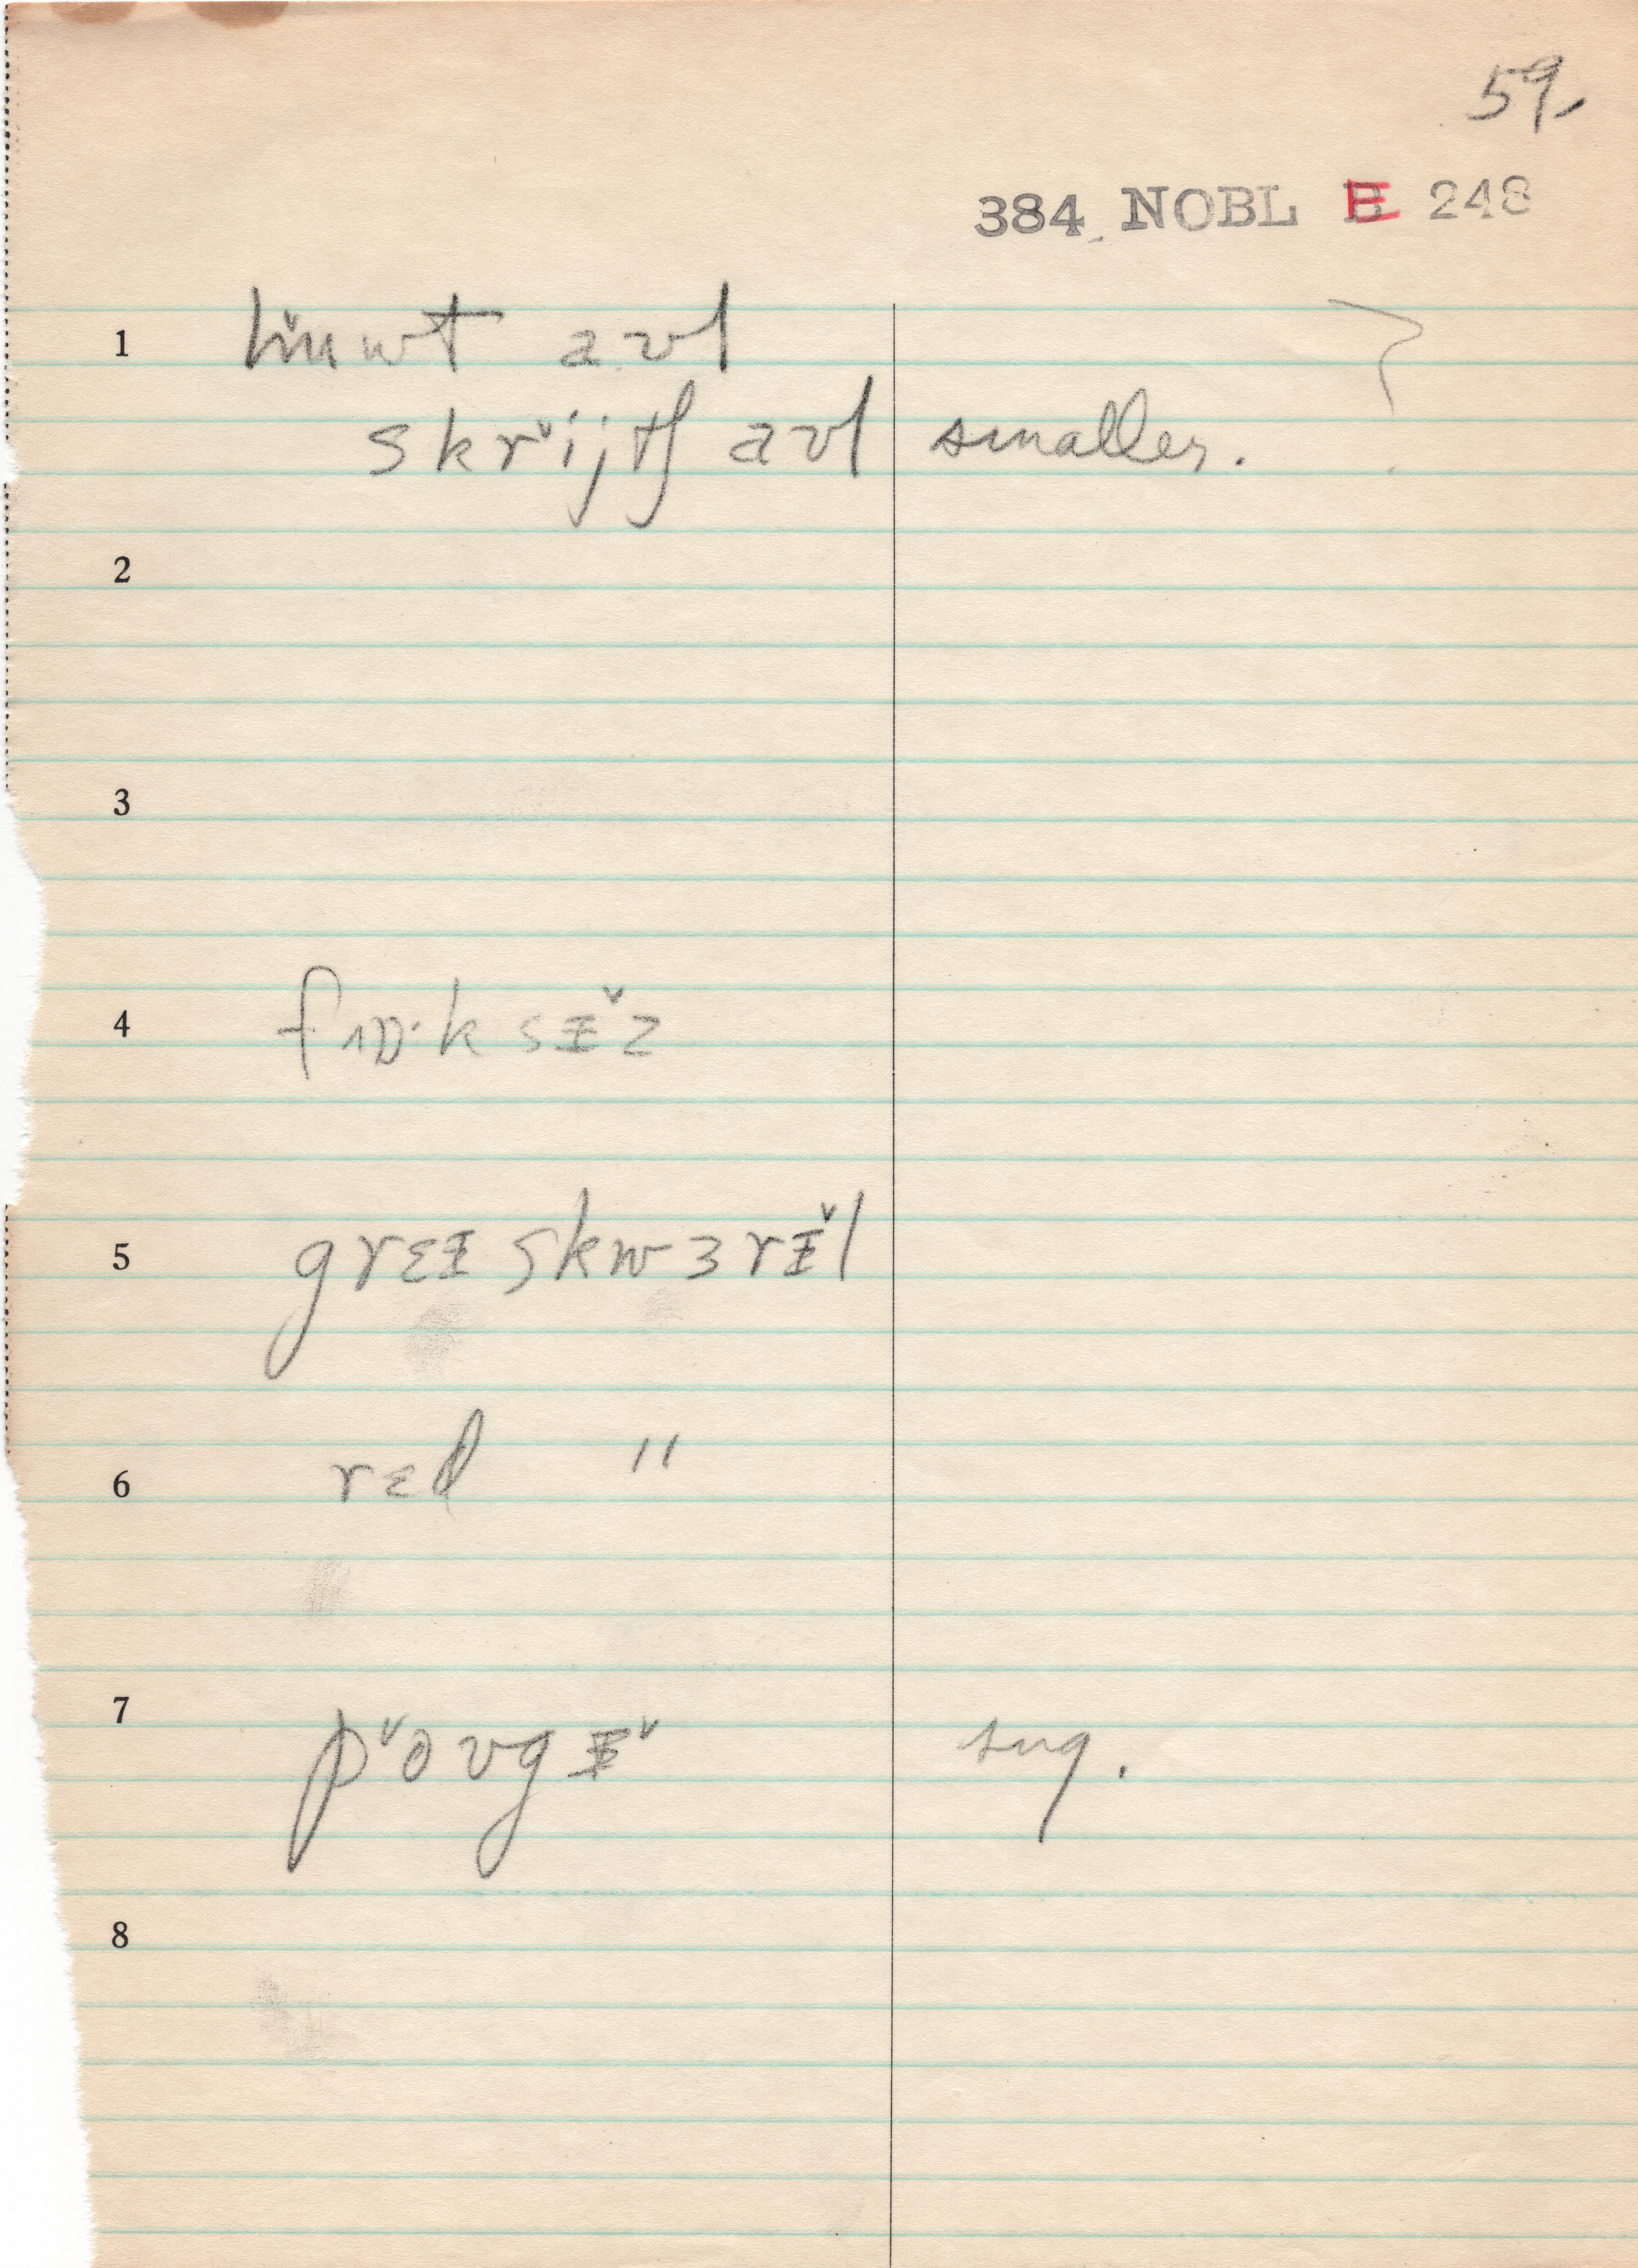 59.
384 NOBL E 248
1 huwt aʊl
skrˇijtʃ aʊl smaller.
2
3
4
5 grɛɪ skwɜrɪ̌l
6 rɛd "
7 pˇoʊgɪˇ sng.
8